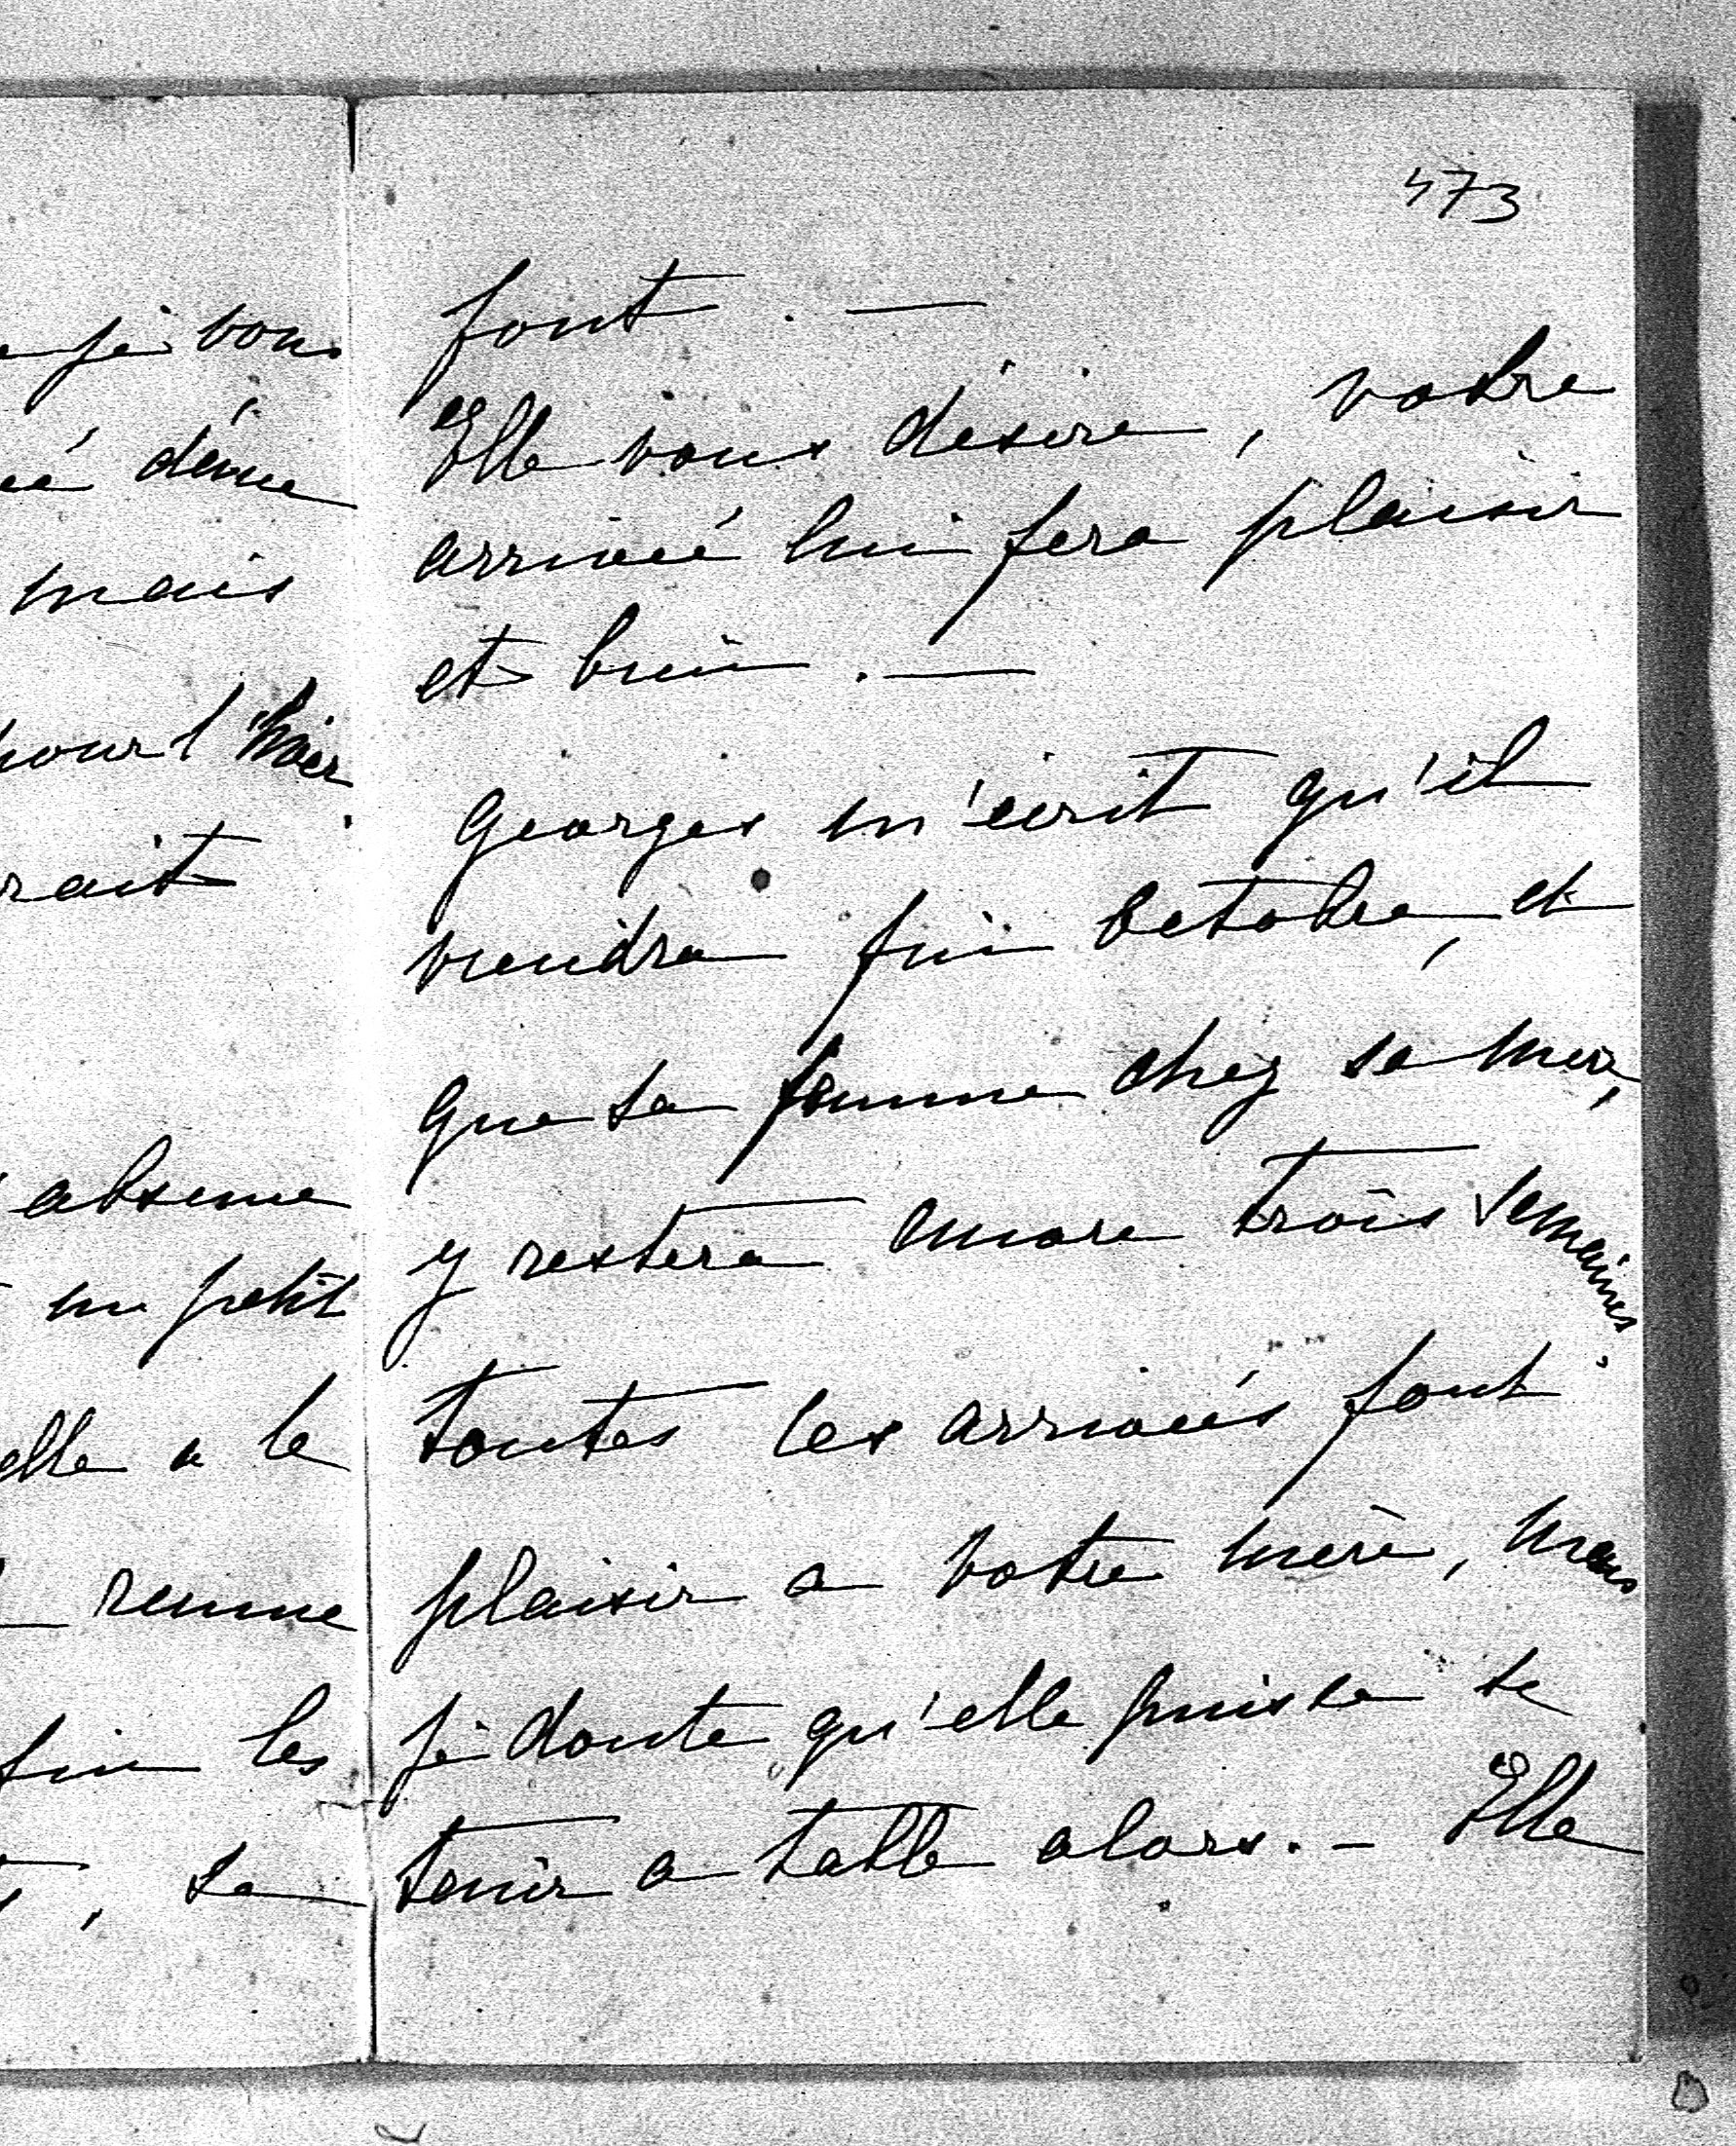 je vous
mais
pour l'hiver
rait
absence
un petit
elle a le
remue
fin les
, sa
473
font. —
Elle vous désire, votre
arrivée lui fera plaisir
et bien. —
Georges m'écrit qu'il
viendra fin Octobre, et
que sa femme chez sa mère,
y restera encore trois semaines.
toutes les arrivées font
plaisir a votre mère, mais
je doute qu'elle puisse se
tenir a table alors. — Elle